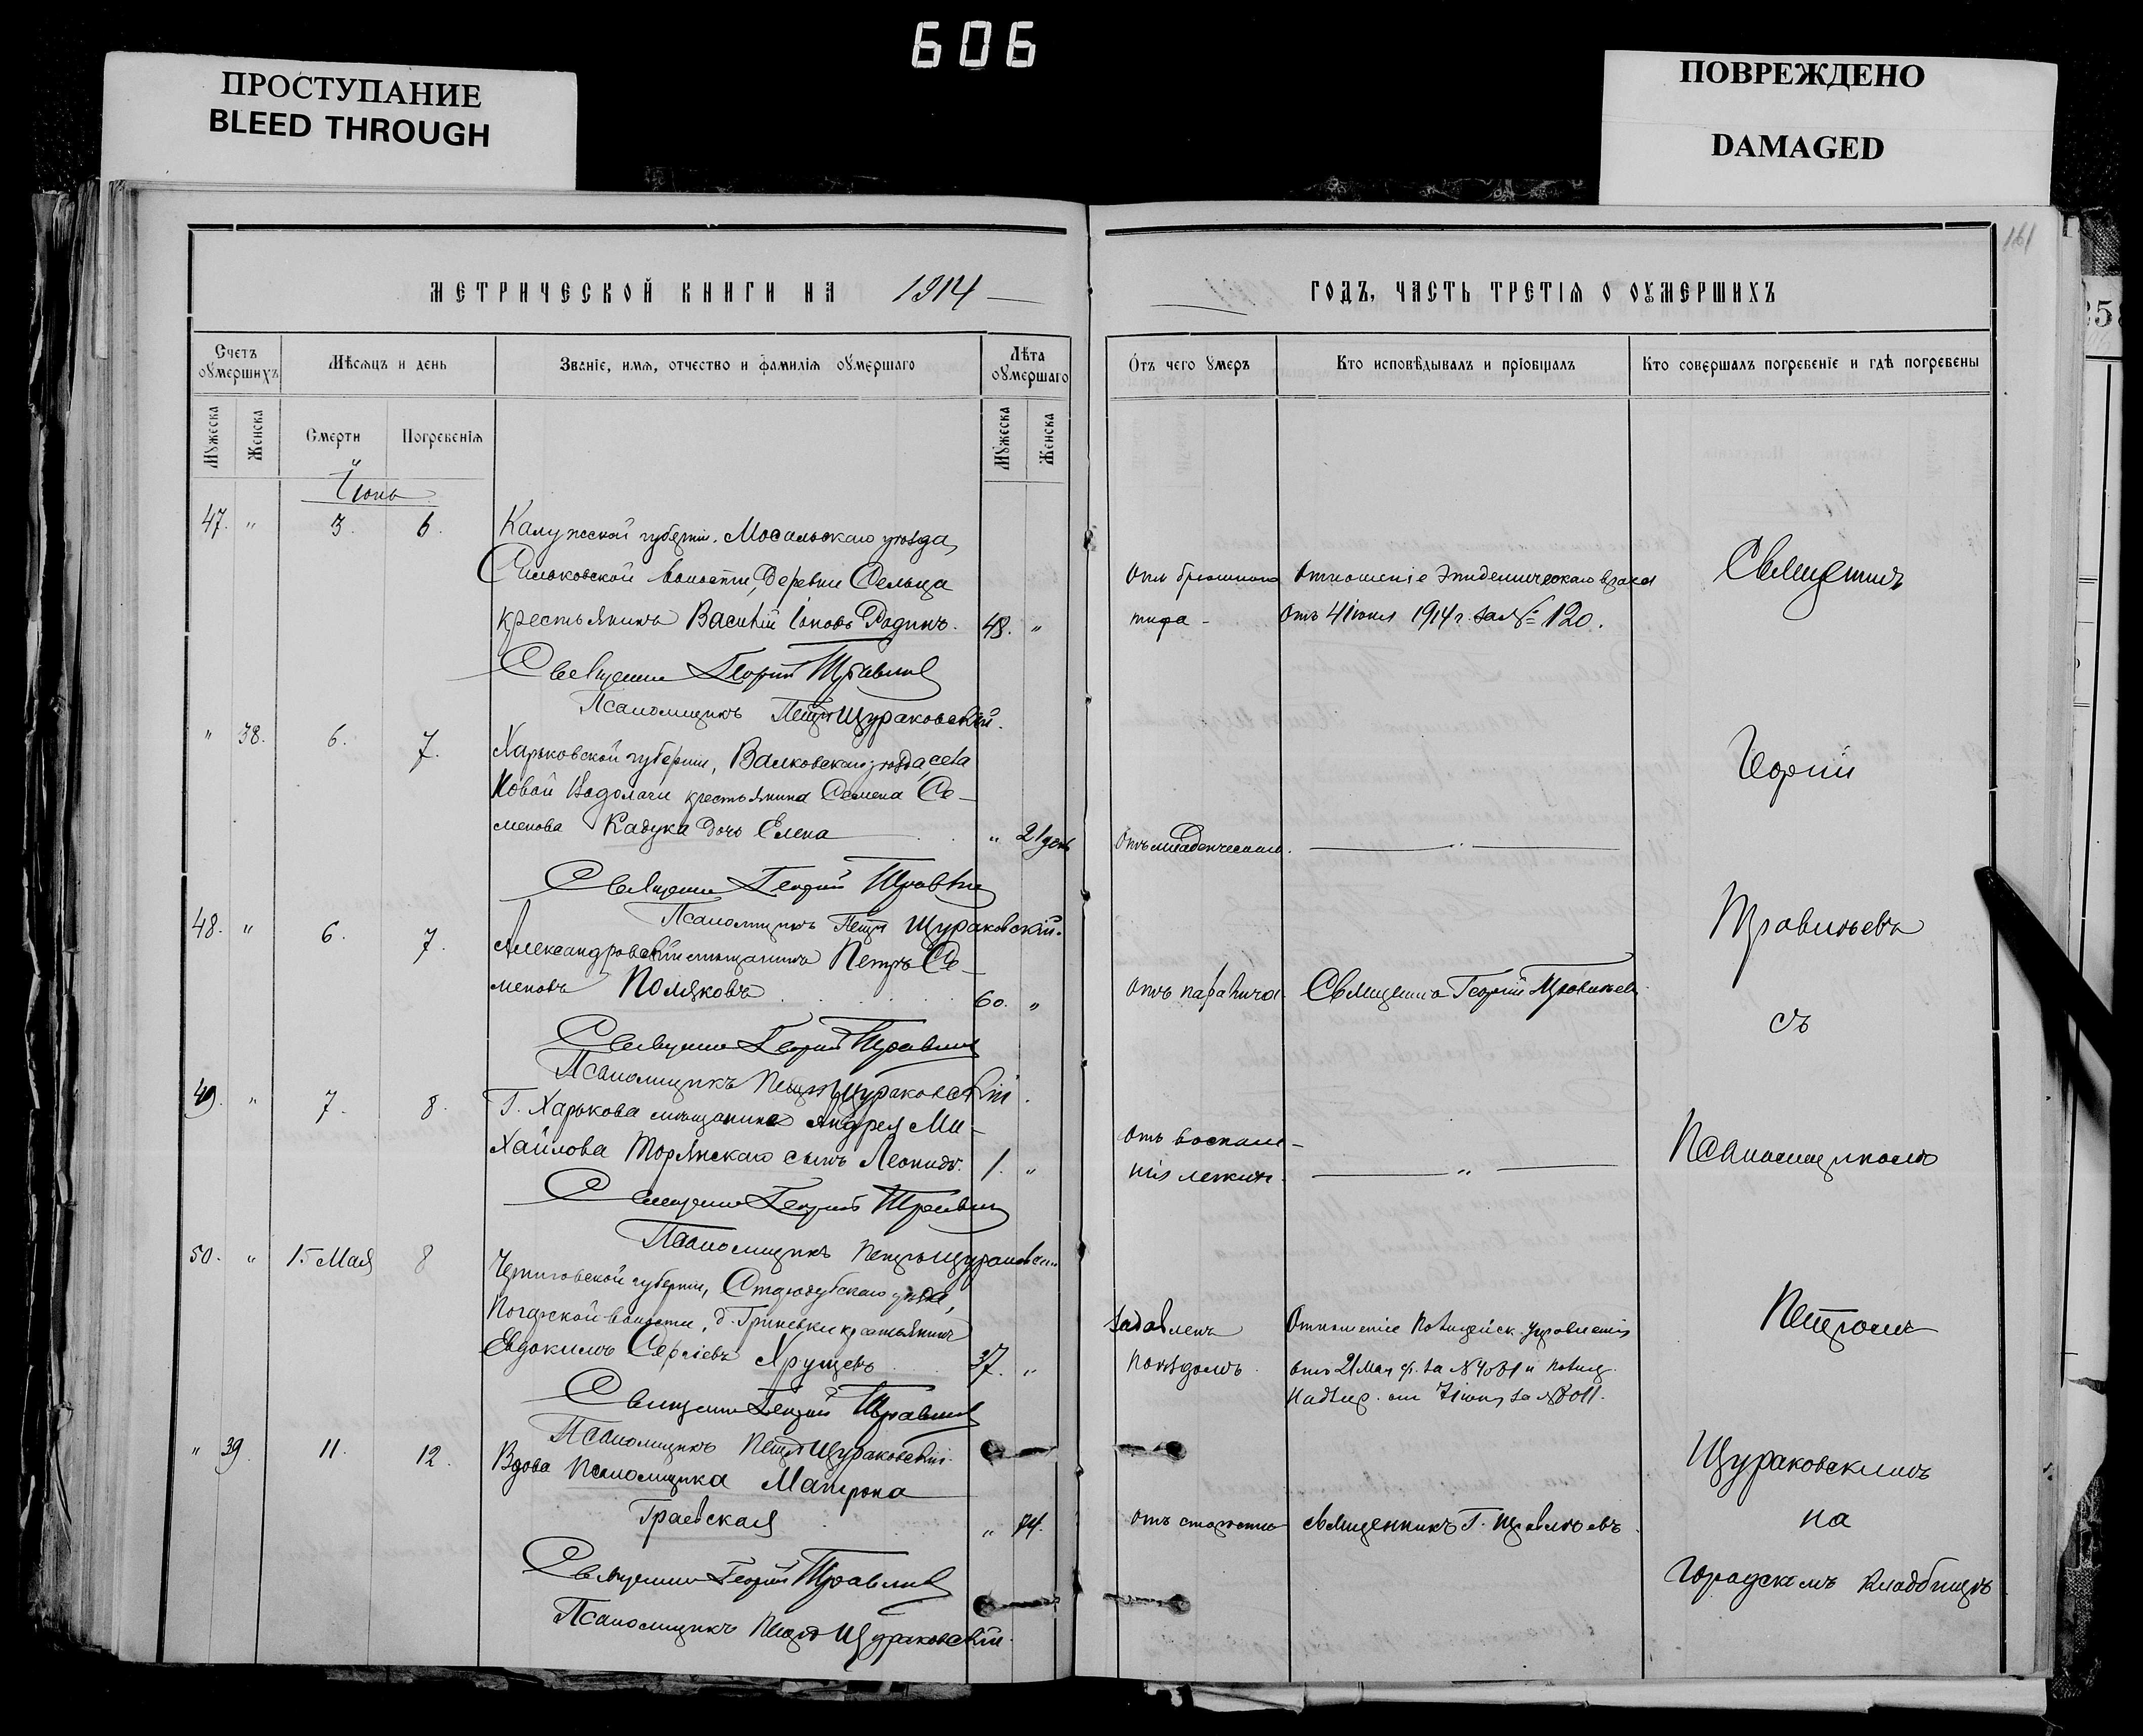 606
ПРОСТУПАНИЕ
BLEED THROUGH
ПОВРЕЖДЕНО
DAMAGED
161
МЕТРИЧЕСКОЙ КНИГИ НА 1914
ГОДЪ, ЧАСТЬ ТРЕТІѦ О ОУМЕРШИХЪ
Счетъ оумершихъ
Мѣсяцъ и день
Званіе, имя, отчество и фамилія оумершаго
Лѣта оумершаго
Отъ чего умеръ
Кто исповѣдывалъ и пріобщалъ
Кто совершалъ погребеніе и гдѣ погребены
Мужеска
Женска
Смерти
Погребенія
Мужеска
Женска
Іюнь
47. " 3. 6. Калужской губерніи, Мосальскаго уѣзда,
Сильковской волости, деревни Сельца
крестьянинъ Василій Іоновъ Родинъ. 48. "
Отъ брюшного
тифа
Отношеніе Эпидемическаго врача
отъ 4 іюня 1914 г. за № 120.
Священникъ Георгій Травильевъ
Псаломщикъ Петръ Щураковскій.
" 38. 6. 7. Харьковской губерніи, Валковскаго уѣзда, села
Новой Водолаги крестьянина Семена Се-
менова Кадука дочь Елена " 21 день
Отъ младенческаго. "
Священникъ Георгій
Псаломщикъ Петръ Щураковскій.
48. " 6. 7. Александровскій мѣщанинъ Петръ Се-
меновъ Поляковъ 60. "
Отъ паралича
Священникъ Георгій
Священникъ Георгій
Псаломщикъ Петръ Щураковскій.
49. " 7. 8. Г. Харькова мѣщанина Андрея Ми-
хайлова Торянскаго сынъ Леонидъ. 1. "
Отъ воспале-
нія легкихъ. "
Священникъ Георгій
Псаломщикъ Петръ Щураковскій
50. " 15 Мая 8 Черниговской губерніи, Стародубскаго уѣзда,
Погарской волости, д. Гриневки крестьянинъ
Евдокимъ Сергіевъ Хрущевъ 37. "
Задавленъ
поѣздомъ.
Отношеніе Полицейск. Управленія
отъ 21 Мая с/г. за № и полиц.
надзир. отъ 7 іюня за № 8011.
Священникъ Георгій
Псаломщикъ Петръ Щураковскій.
" 39 11. 12. Вдова псаломщика Матрона
Граевская " 74.
Отъ старости
священникъ Г.
Священникъ Георгій
Псаломщикъ Петръ Щураковскій.
Священникъ
Георгій
съ
Псаломщикомъ
Петромъ
Щураковскимъ
на
городскомъ кладбищѣ